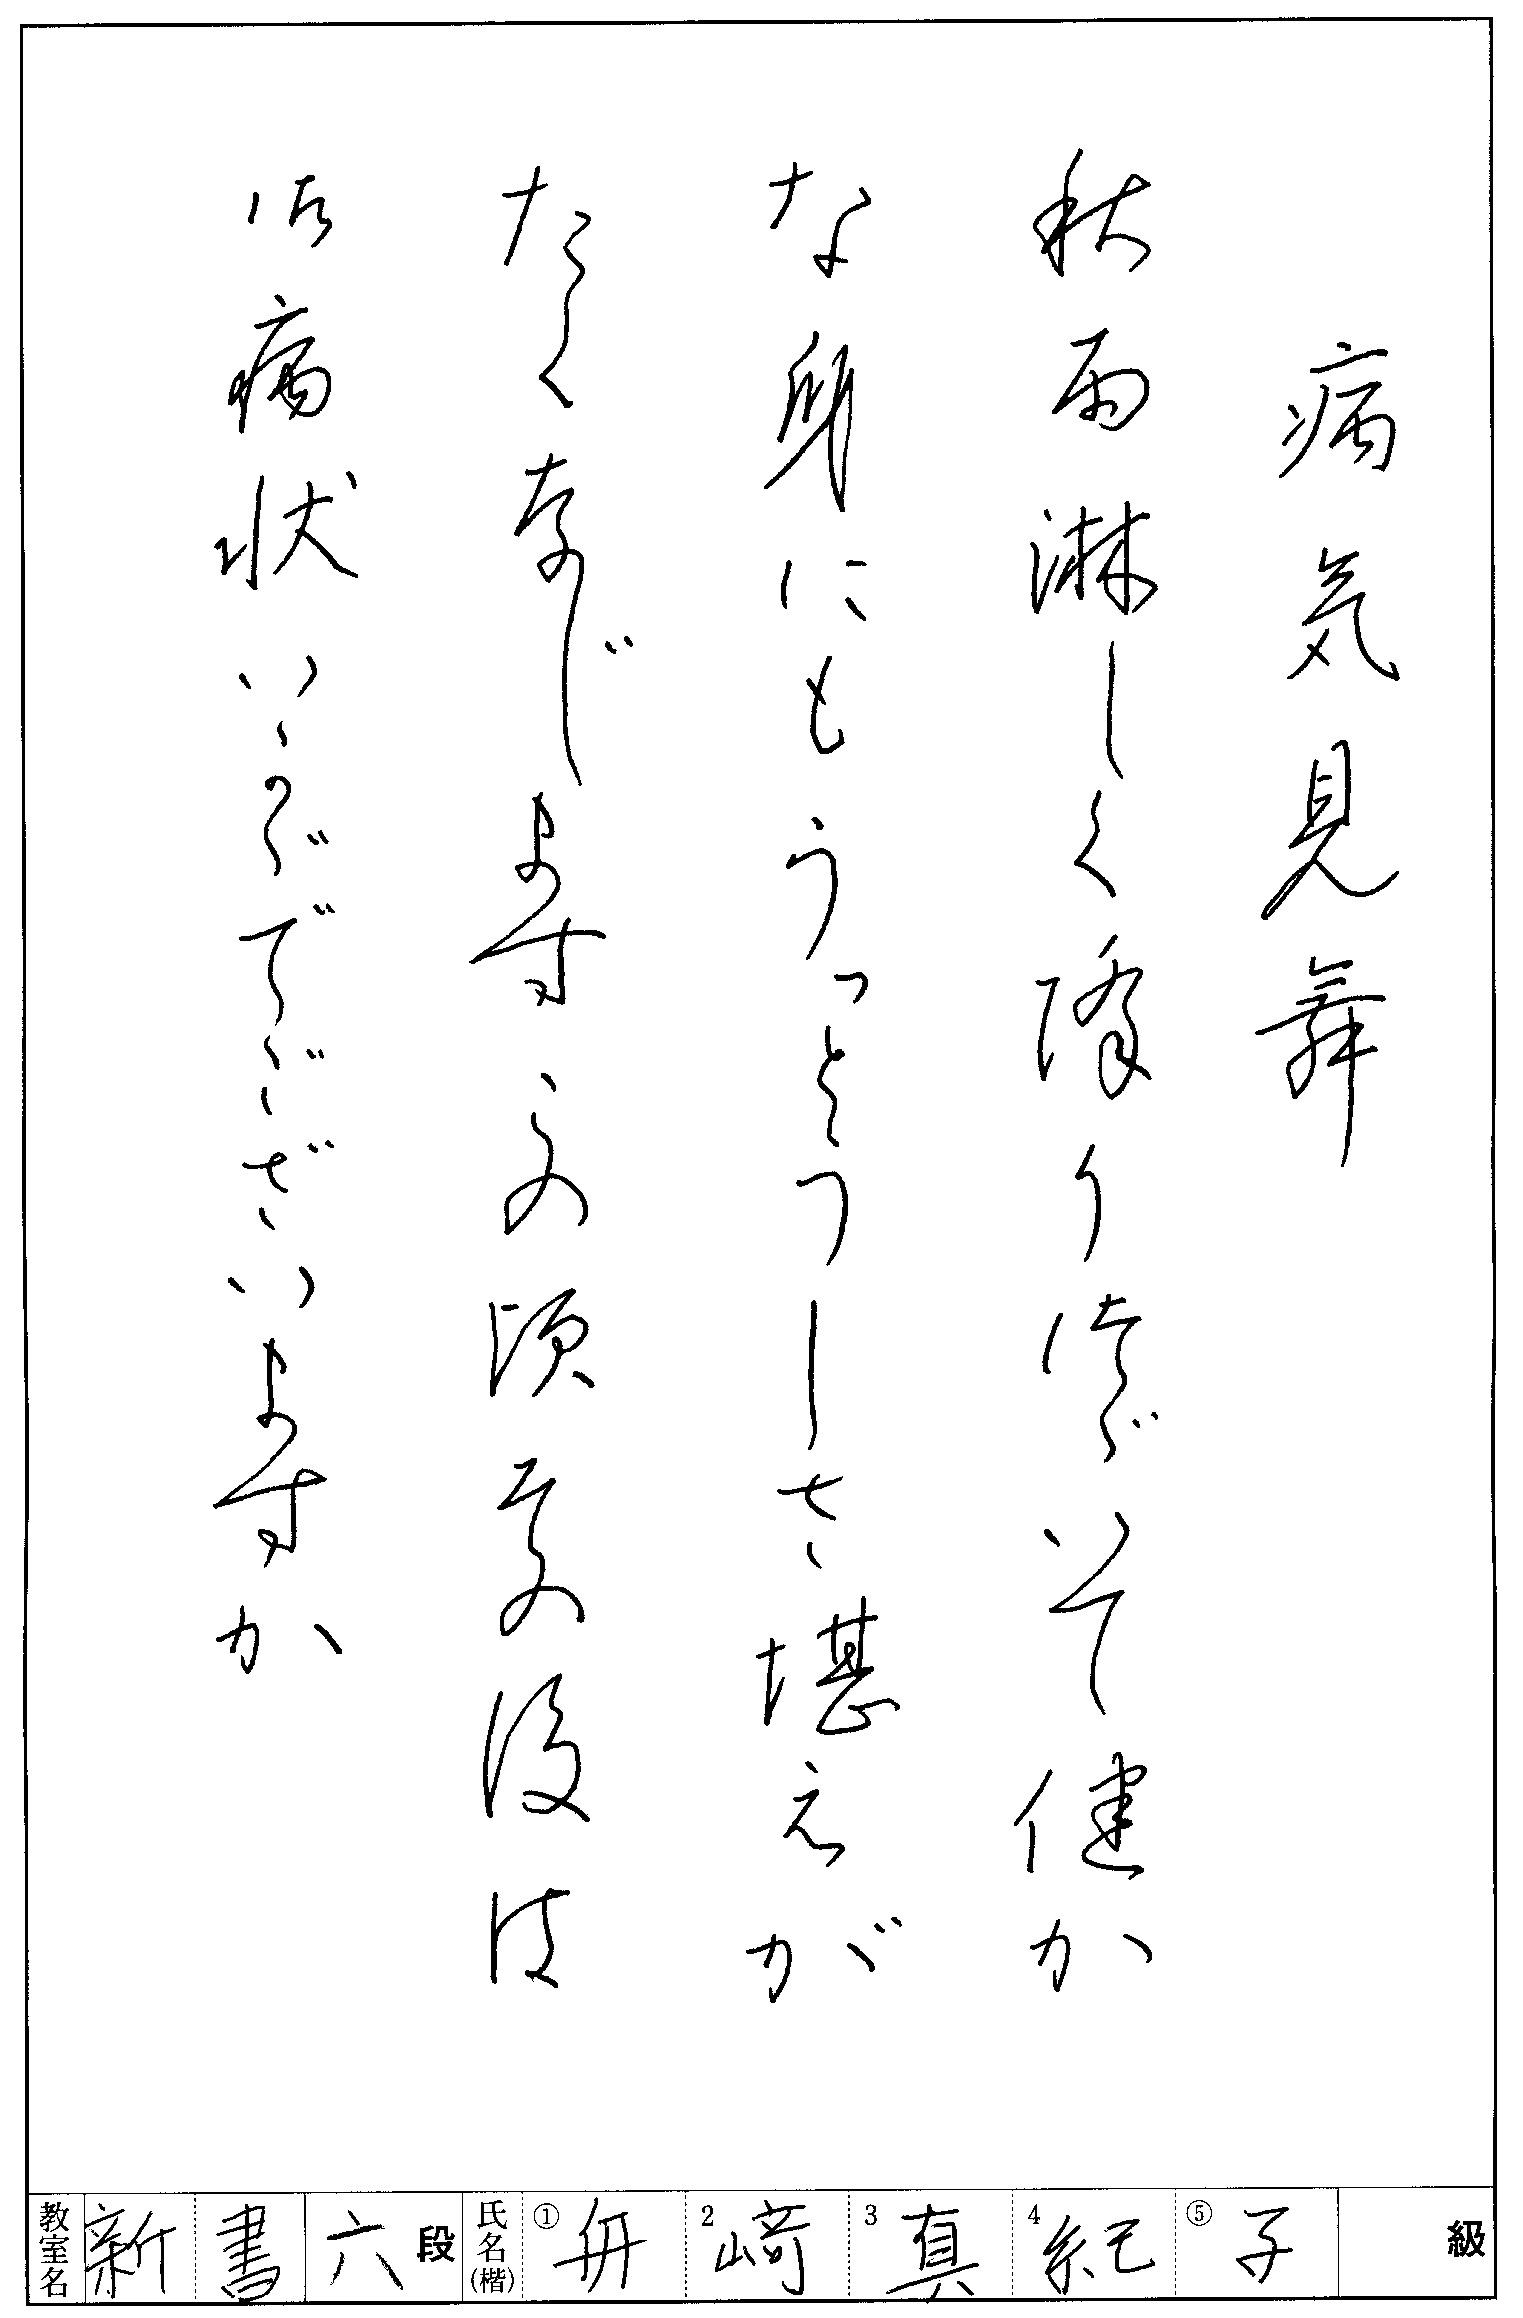 病気見舞
秋雨淋しく降りつづいて健か
な身にもうっとうしさ堪えが
たく存じますこの頃その後は
御病状いかがでございますか
教室名 新書 六段 氏名(楷) ①舟 2崎 3真 4紀 ⑤子 級